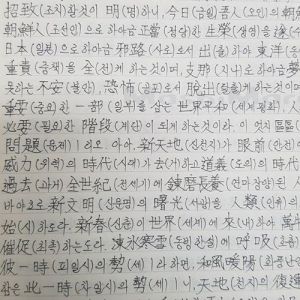 招致(초치)할것이 明(명)하니, 今日(금일) 吾人(오인)의 朝
朝鮮人(조선인)으로 하야금 正當(정당)한 生榮(생영)을 遂
日本(일본)으로 하야금 邪路(사로)로서 出(출)하야 東洋(동
重責(중책)을 全(전)케 하는것이며, 支那(지나)로 하야금 夢
못하는 不安(불안), 恐怖(공포)로서 脫出(탈출)케 하는것이며,
重要(중요)한 一部(일부)를 삼는 世界平和(세계평화), 人
必要(필요)한 階段(계단)이 되게 하는것이라. 이 엇지 區區
問題(문제)ㅣ리오. 아아, 新天地(신천지)가 眼前(안전)에
威力(위력)의 時代(시대)가 去(거)하고 道義(도의)의 時代
過去(과거) 全世紀(전세기)에 鍊磨長養(연마장양)된 人
바야흐로 新文明(신문명)의 曙光(서광)을 人類(인류)의
始(시)하도다. 新春(신춘)이 世界(세계)에 來(내)하야 萬
催促(최촉)하는도다. 凍氷寒雪(동빙한설)에 呼吸(호흡)
彼一時(피일시)의 勢(세)ㅣ라 하면, 和風暖陽(화풍난양
함은 此一時(차일시)의 勢(세)ㅣ니, 天地(천지)의 復運